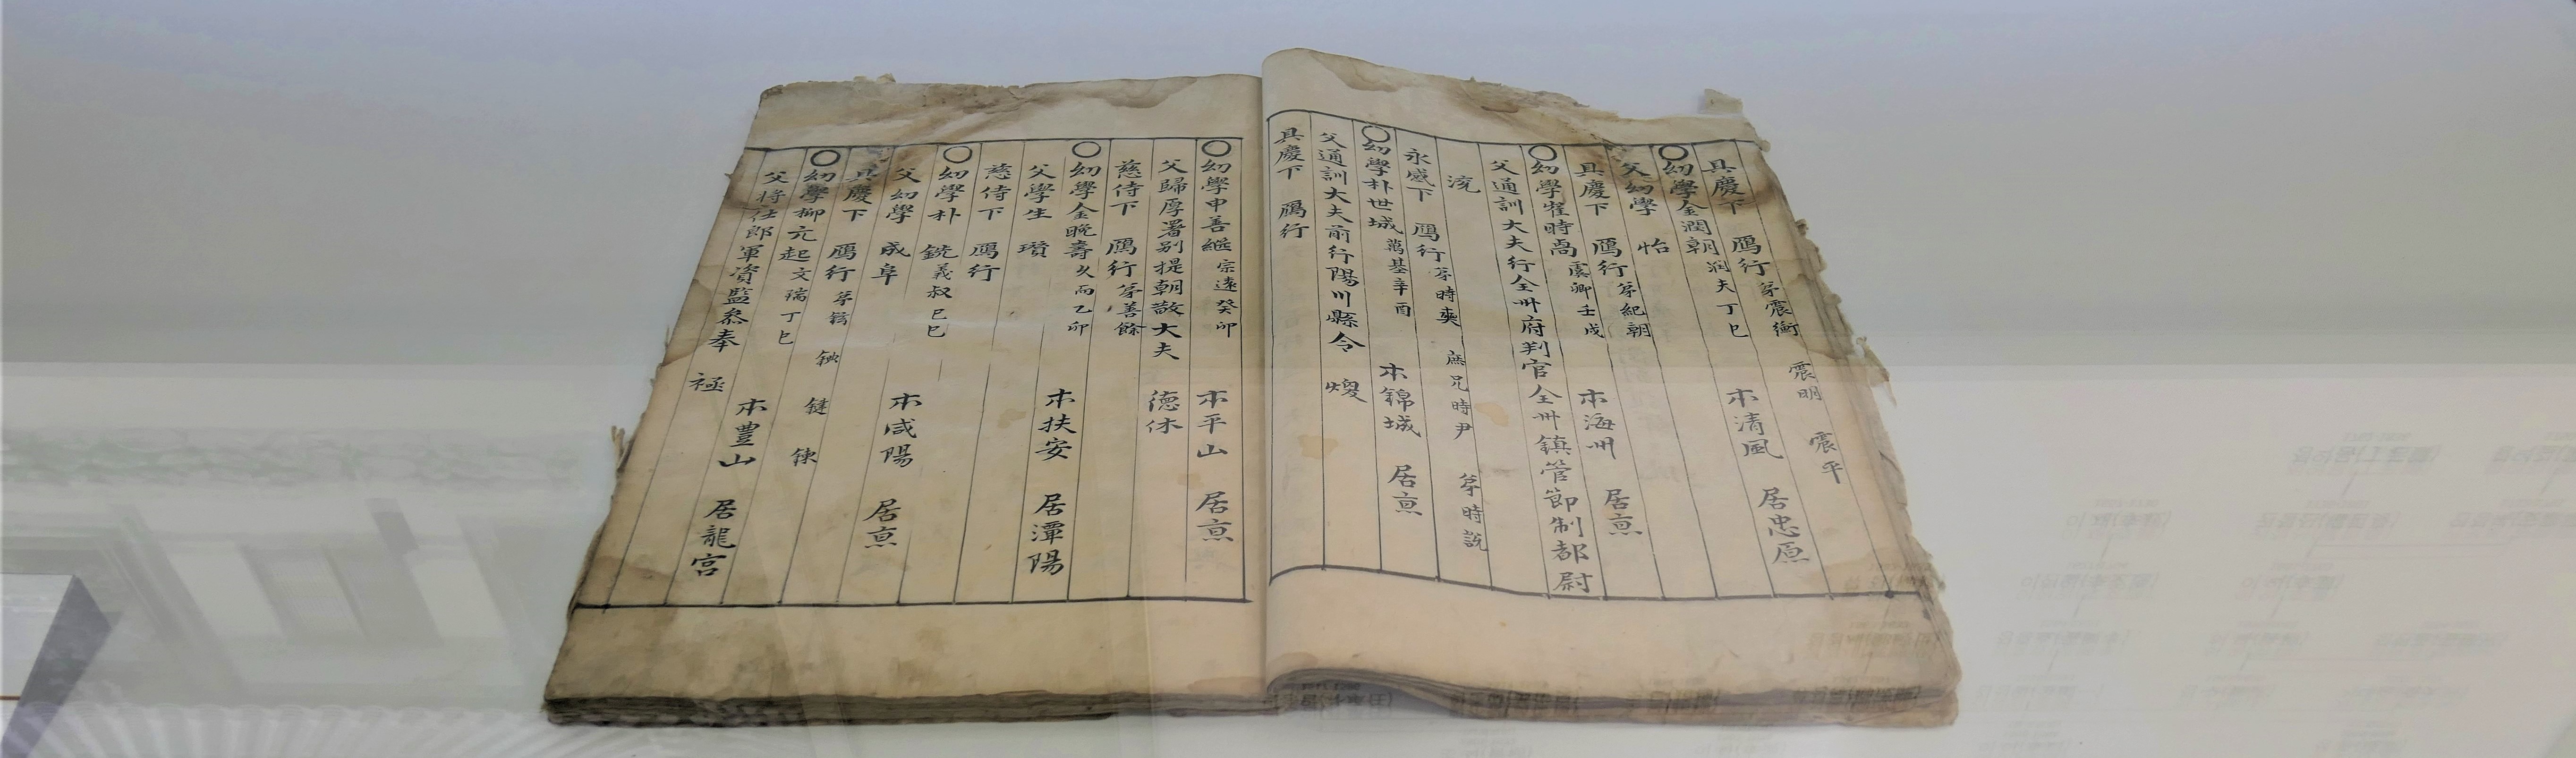 具慶下 鴈行 弟震衡 震明 震平
幼學金潤朝 潤夫 丁巳 本清風 居忠原
父幼學 怡
具慶下 鴈行 弟紀朝
幼學崔時卨 虞卿 壬戌 本海州 居京
父通訓大夫行全州府判官全州鎮管節制都尉
流
永感下 鴈行 弟時奭 庶兄時尹 弟時說
幼學朴世城 萬基 辛酉 本錦城 居京
父通訓大夫前行陽川縣令 煖
具慶下 鴈行
幼學申善繼 宗遠 癸卯 本平山 居京
父歸厚署別提朝散大夫 德休
慈侍下 鴈行 弟善餘
幼學金晚壽 久而 乙卯 本扶安 居潭陽
父學生 瓚
慈侍下 鴈行
幼學朴 銑 義叔 己巳 本咸陽 居京
父幼學 成阜
具慶下 鴈行 弟 鍵 鍊
幼學柳元起 文瑞 丁巳 本豊山 居龍宮
父將仕郎軍資監叅奉 𥘺